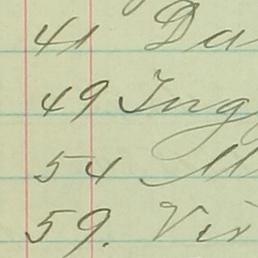 41 Da
49 Ing
54 M
59. Vir